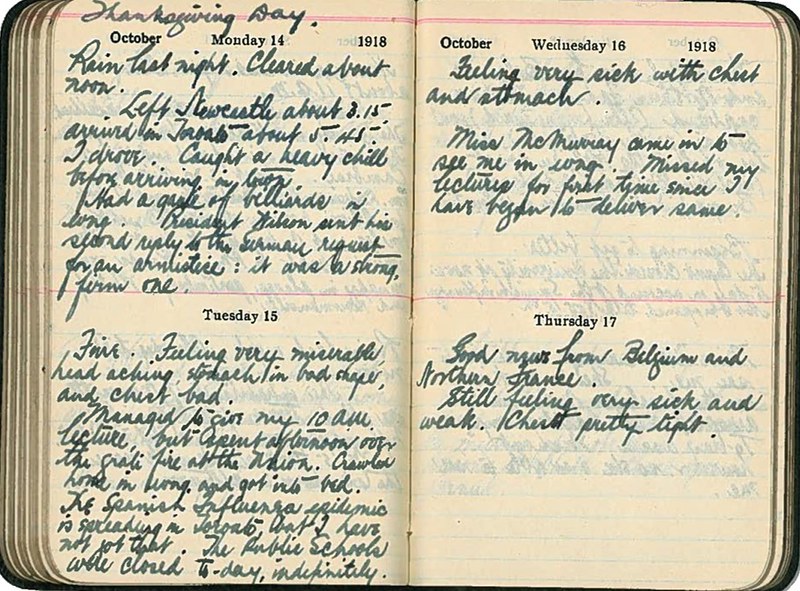 Thanksgiving Day.
October Monday 14 1918
Rain last night. Cleared about
noon.
Left Newcastle about 3.15
arrived in Toronto about 5.45.
I drove. Caught a heavy chill
before arriving in town.
Had a game of billiards in
evng. President Wilson sent his
second reply to the German request
for an armistise: it was a strong,
firm one.
Tuesday 15
Fine. Feeling very miserable,
head aching stomach in bad shape,
and chest bad.
Managed to give my 10 a.m.
lecture, but spent afternoon over
the grate fire at the Union. Crawled
home in evng and got into bed.
The Spanish Influenza epidemic
is spreading in Toronto but I have
not got that. The Public Schools
were closed to-day, indefinitely.
October Wednesday 16 1918
Feeling very sick with chest
and stomach.
Miss McMurray came in to
see me in evng. Missed my
lectures for first time since I
have began to deliver same.
Thursday 17
Good news from Belgium and
Northern France.
Still feeling very sick and
weak. Chest pretty tight.